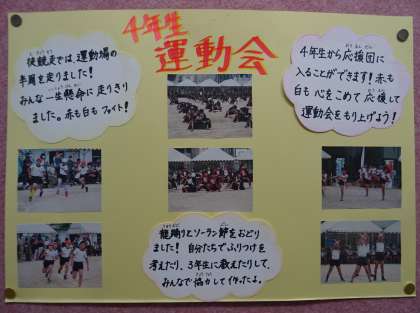 4年生
運動会
徒競走では、運動場の
半周を走りました！
みんな一生懸命に走りきり
ました。赤も白もファイト！
4年生から応援団に
入ることができます！赤も
白も心をこめて応援して
運動会をもり上げよう！
龍踊りとソーラン節をおどり
ました！自分たちでふりつけを
考えたり、3年生に教えたりして、
みんなで協力して作ったよ。